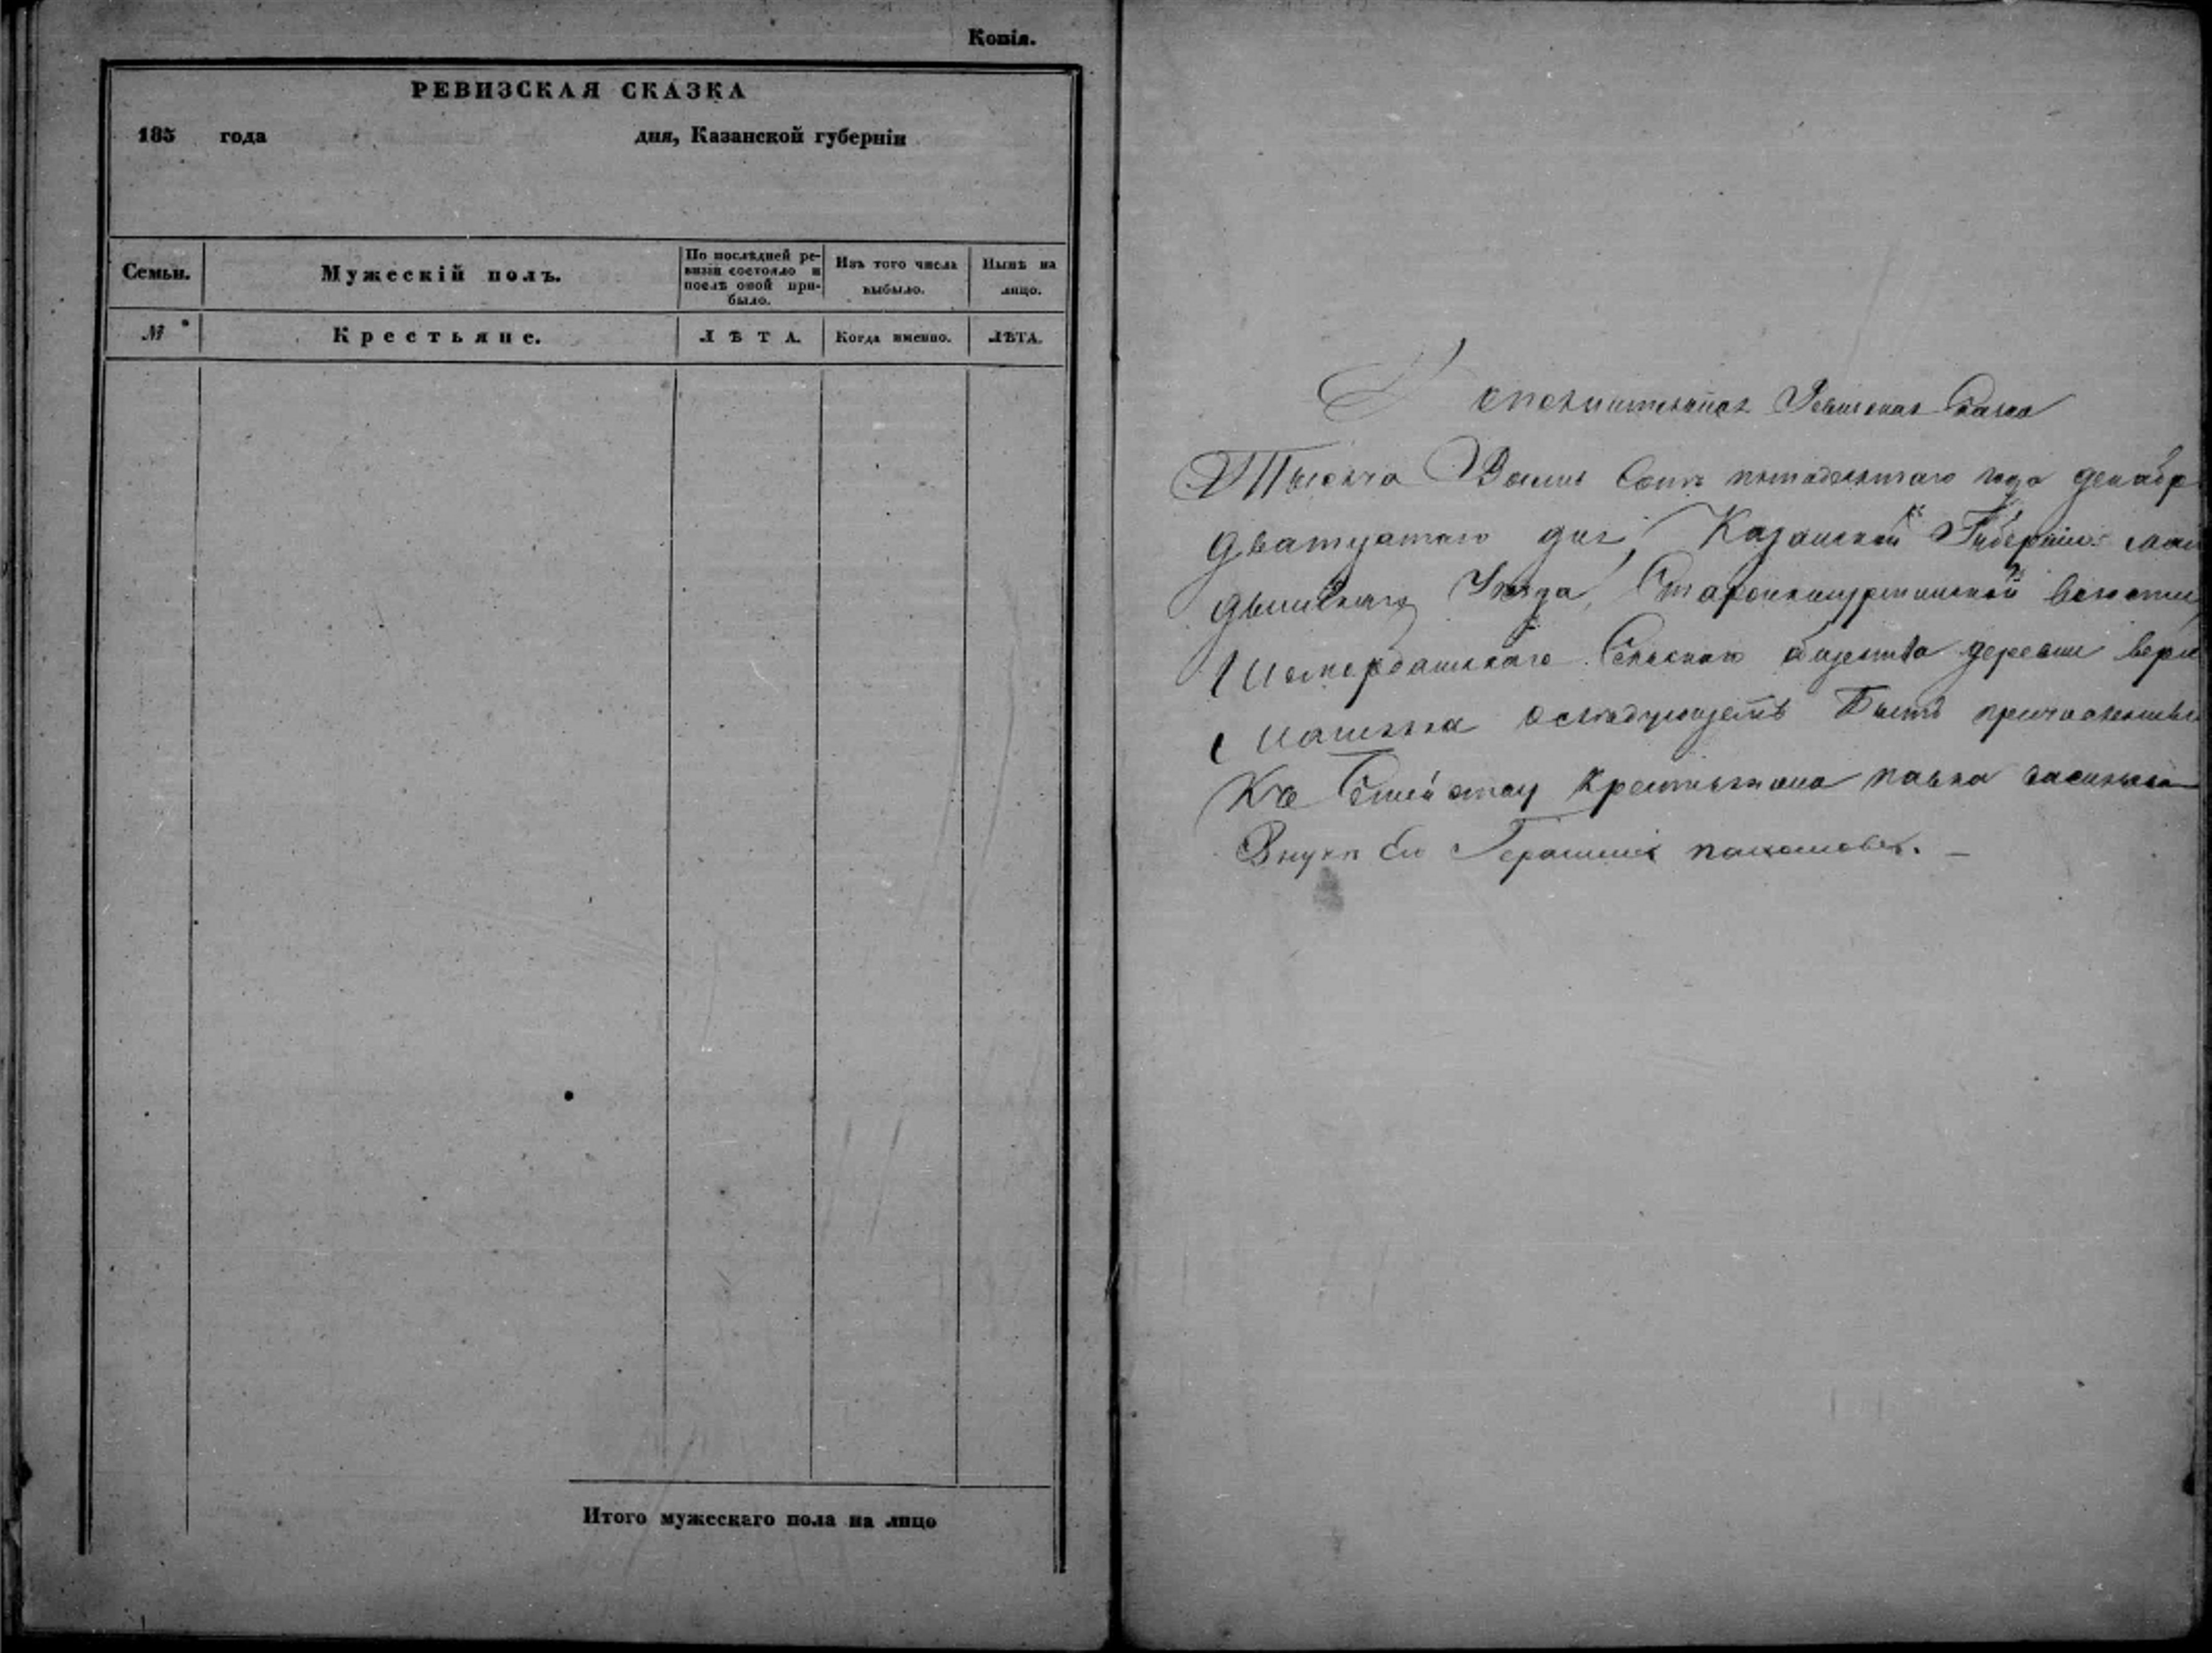 Копія.
РЕВИЗСКАЯ СКАЗКА
185 года дня, Казанской губерніи
Семьи.
Мужескій полъ.
По послѣдней ре-
визіи состояло и
послѣ оной при-
было.
Изъ того числа
выбыло.
Нынѣ на
лицо.
№
Крестьяне.
ЛѢТА.
Когда именно.
ЛѢТА.
Итого мужескаго пола на лицо
Дополнительная Ревизская Сказка
Тысяча Восемь Сотъ пятидесятаго года декабр
дватцатаго дня, Казанской Губерніи мам
дышскаго Уезда, волости
Шемордансково Сельскаго общества деревни верх
оследующемъ
Къ Семейству Крестьянина павла васильева
Внука Его Герасима